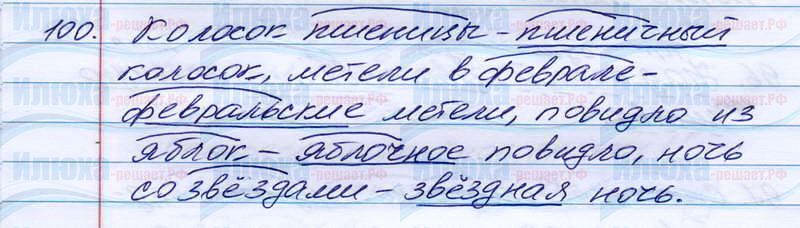 100. Колосок пшеницы - пшеничный
колосок, метели в феврале -
февральские метели, повидло из
яблок - яблочное повидло, ночь
со звёздами - звёздная ночь.